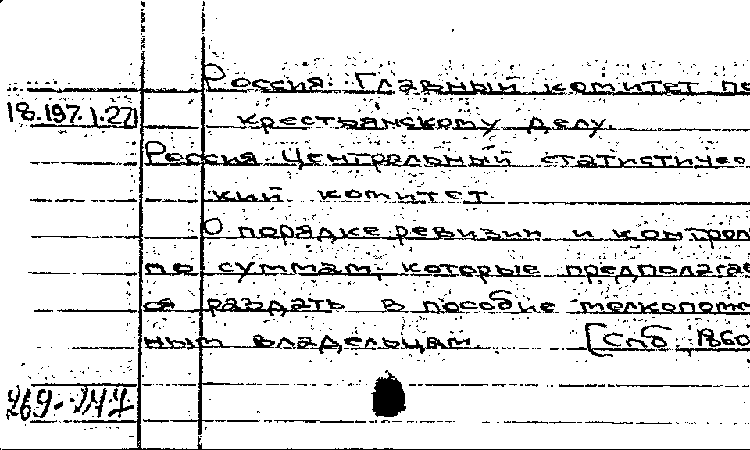 Россия. Главный комитет по
18.197.1.271
крестьянскому делу.
Россия. Центральный статистичес
кий комитет
О порядке ревизии и контрол
по суммам, которые предполагае
ся раздать в пособие мелкопоме
ным владельцам. [Спб, 1860
269-247